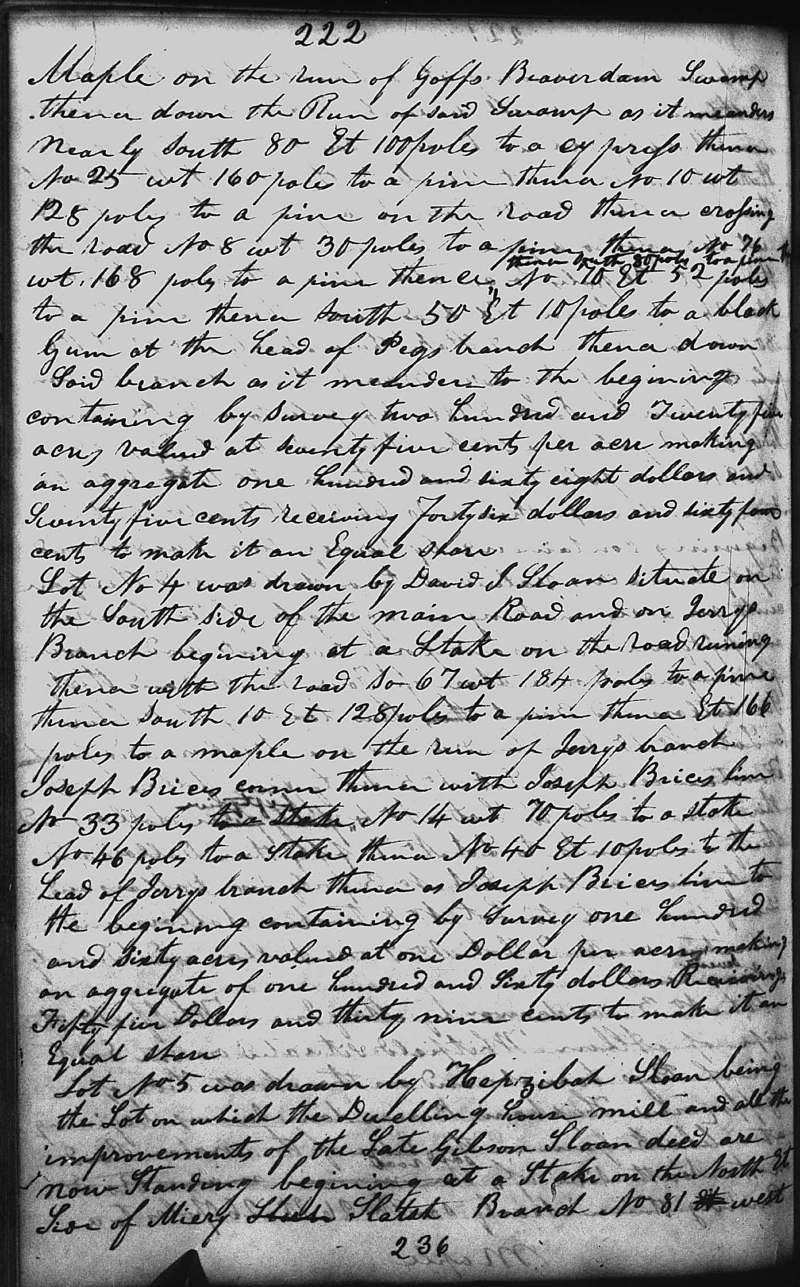 222
Maple on the run of Goffs Beaverdam Swamp
thence down the Run of said Swamp as it meanders
nearly South 80 Et 100 poles to a cypress thence
No 25 wt 160 poles to a pine thence No 10 wt
128 poles to a pine on the road thence crossing
the road No 8 wt 30 poles to a pine thence No 76
thence South 80 poles to a pine
wt. 168 poles to a pine thence No 10 Et 52 poles
to a pine thence South 50 Et 10 poles to a black
Gum at the head of Pegs branch thence down
Said branch as it meanders to the begining
containing by Survey two hundred and Twenty five
acres valued at seventy five cents per acre making
an aggregate one hundred and sixty eight dollars and
Seventy five cents receiving Forty six dollars and sixty four
cents to make it an Equal share
Lot No 4 was drawn by David J Sloan situate on
the South side of the main Road and on Jerrys
Branch begining at a Stake on the road runing
thence with the road So 67 wt 184 poles to a pine
thence South 10 Et 128 poles to a pine thence Et 166
poles to a maple on the run of Jerrys branch
Joseph Brices corner thence with Joseph Brices line
No 33 poles to a stake No 14 wt 70 poles to a stake
No 46 poles to a Stake thence No 40 Et 10 poles to the
head of Jerrys branch thence as Joseph Brices line to
the begining containing by Survey one hundred
and Sixty acres valued at one Dollar per acre making
an aggregate of one hundred and Sixty dollars Receiving
Fifty five Dollars and thirty nine cents to make it an
Equal share
Lot No 5 was drawn by Hepzibah Sloan being
the Lot on which the Dwelling house mill and all the
improvements of the Late Gibson Sloan deed are
now Standing begining at a Stake on the North Et
Side of Miery Slash Branch No 81 west
236